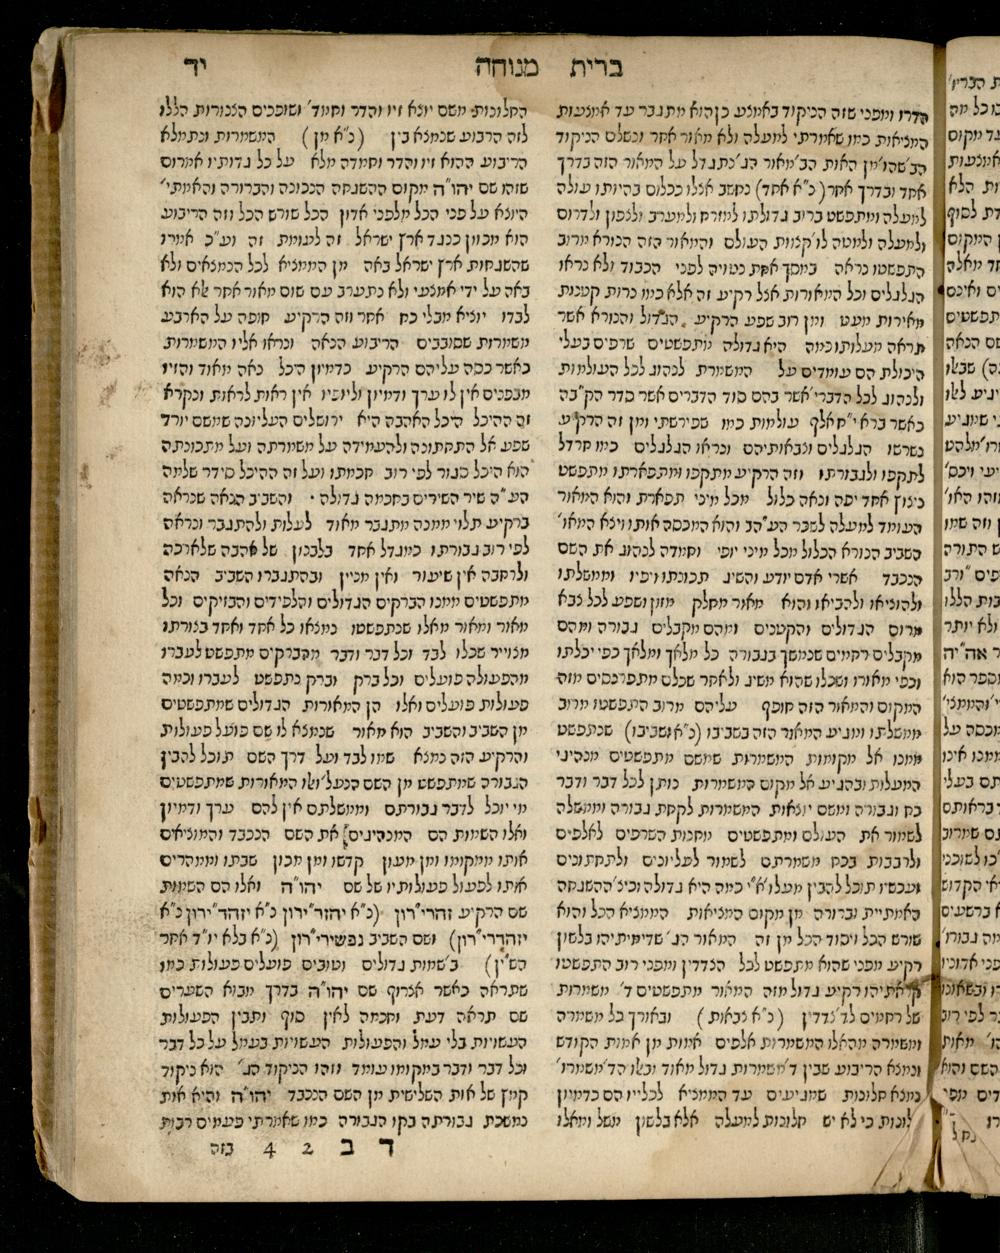 ברית מנוחה יד
הדרו ומפני שזה הניקוד באמצע כן הוא מתגבר עד אמצעות
המציאות כמו שאמרתי למעלה ולא מאור אחר ונשלם הניקוד
הב' שהו' מן האות הב' מאור הג' נתגדל על המאור הזה בדרך
אחד ובדרך אחר (נ"א אחד) נחשב אצלו ככלום בהיותו עולה
למעלה ומתפשט ברוב גדולתו למזרח ולמערב ולצפון ולדרום
ולמעלה ולמטה לו' קצוות העולם והמאור הזה הנורא מרוב
התפשטו נראה במסך אחת נטויה לפני הכבוד ולא נראו
הגלגלים וכל המאורות אצל רקיע זה אלא כמו נרות קטנות
מאירות מעט ומן רוב שפע הרקיע הגדול והנורא אשר
תראה מעלותו כמה היא גדולה מתפשטים שרפים בעלי
היכולת הם עומדים על המשמרת לנהוג לכל העולמות
ולנהוג לכל הדברי' אשר בהם סוד הדברים אשר סדר הק"בה
כאשר ברא י"ח אלף עולמות כמו שפירשתי ומן זה הרקיע
נשרשו הגלגלים וצבאותיהם ונראו הגלגלים כמו חרדל
לתקפו ולגבורתו וזה הרקיע מתקפו ומתפארתו מתפשט
ניצוץ אחד יפה ונאה כלול מכל מיני תפארת והוא המאור
העומד למעלה לשבר הע"הב והוא המכסה אותו ויצא המאו'
השביב הנורא הכלול מכל מיני יופי וחמדה לנהוג את השם
הנכבד אשרי אדם יודע והשיג תכונתו ויפיו וממשלתו
ולהוציאו ולהביאו והוא מאור מחלק מזון ושפע לכל צבא
מרום הגדולים והקטנים ומהם מקבלים גבורה ומהם
מקבלים רחמים שנמשך בגבורה כל מלאך ומלאך כפי יכלתו
וכפי מאורו ושכלו שהוא משיג ולאחר שכלם מתפרנסים מזה
המקום והמאור הזה חופף עליהם מרוב התפשטו מרוב
ממשלתו ומגיע המאור הזה בשביבו (נ"א ושביבו) שנתפשט
ממנו אל מקומות המשמרות שמשם מתפשטים מנהיגי
המעלות ובהגיע אל מקום המשמרות נותן לכל דבר ודבר
כח וגבורה ומשם יוצאות המשמרות לקחת גבורה וממשלה
לשמור את העולם ומתפשטים מחנות השרפים לאלפים
ולרבבות בכח משמרתם לשמור לעליונים ולתחתונים
ועכשיו תוכל להבין מעלו'א"י כמה היא גדולה וכיצ' ההשגחה
האמתיית וברורה מן מקום המציאות הממציא הכל והוא
שורש הכל ויסוד הכל מן זה המאור הג' שדימיתיהו בלשון
רקיע מפני שהוא מתפשט לכל הצדדין ומפני רוב התפשטו
קראתיהו רקיע גדול מזה המאור מתפשטים ד' משמרות
של רחמים לד' צדדין (נ"א צבאות) ובאורך כל משמרה
ומשמרה מהאלו המשמרות אלפים אמות מן אמות הקודש
ונמצא הריבוע שבין ד' משמרות גדול מאוד ובאלו הד' משמרו'
נמצא חלונות שמגיעים עד הממציא לכלייו הם כדמיון
לונות כי לא יש חלונות למעלה אלא בלשון משל ומאלו
החלונות משם יוצא זיו והדר וחמד' ושופכים הצנורות הללו
לזה הרבוע שנמצא בין (נ"א מן) המשמרות ונתמלא
הריבוע ההוא זיו והדר וחמדה מלא על כל גדותיו אמרום
שזהו שם יהו"ה מקום ההשגחה הנכונה והברורה והאמתי'
היוצא על פני הכל מלפני אדון הכל שורש הכל וזה הריבוע
הוא מכוון כנגד ארץ ישראל זה לעומת זה וע"כ אמרו
שהשגחות ארץ ישראל באה מן הממציא לכל הנמצאים ולא
באה על ידי אמצעי ולא נתערב עם שום מאור אחר שא הוא
לבדו יוציא מבלי כח אחר וזה הרקיע חופה על הארבע
משמרות שסובבים הריבוע הנאה ונראו אליו המשמרות
כאשר כסה עליהם הרקיע כדמיון היכל נאה מאוד והזיו
מבפנים אין לו ערך ודמיון וליושיו אין ראות לראות ונקרא
זה ההיכל היכל האהבה היא ירושלים העליונה שמשם יורד
שפע אל התחתונה ולהעמידה על משמרתה ועל מתכונתה
הוא היכל סגור לפי רוב חכמתו ועל זה ההיכל סידר שלמה
הע"ה שיר השירים בחכמה גדולה. והשביב הנאה שנראה
ברקיע תלוי ממנה מתגבר מאוד לעלות ולהתגבר ונראה
לפי רוב גבורתו כמגדל אחד בלבנון של אהבה שלארכה
ולרחבה אין שיעור ואין מניין ובהתגברו השביב הנאה
מתפשטים ממנו הברקים הגדולים והלפידים והבזיקים וכל
מאור ומאור מאלו שנתפשטו נמצאו כל אחד ואחד בצורתו
מצוייר שכלו לבד וכל דבר ודבר מהברקים מתפשט לעברו
מהפעולה פועלים וכל ברק וברק נתפשט לעברו וכמה
פעולות פועלים ואלו הן המאורות הגדולים שמתפשטים
מן השביב והשביב הוא מאור שנמצא לו שם פועל פעולות
והרקיע הזה נמצא שמו לבד ועל דרך השם תוכל להבין
הגבורה שמתפשט מן השם הנעל' ואלו המאורות שמתפשטים
מי יוכל לדבר גבורתם וממשלתם אין להם ערך ודמיון
ואלו השמות הם המנהיגים את השם הנכבד והמוציאים
אותו ממקומו ומן מעון קדשו ומן מכון שבתו וממהרים
אתו לפעול פעולותיו של שם יהו"ה ואלו הם השמות
שם הרקיע זהרי"רון (נ"א יהזר"ירון נ"א יזהד"ירון נ"א
יזהדרי"רון) ושם השביב נפשירי"רון (נ"א בלא יו"ד אחר
הש"ין) ב' שמות גדולים וטובים פועלים פעולות כמו
שתראה כאשר אצרוף שם יהו"ה בדרך מבוא השערים
שם תראה דעת וחכמה לאין סוף ותבין הפעולות
העשויות בלי עמל והפעולות העשויות בעמל על כל דבר
וכל דבר ודבר במקומו עומד וזהו הניקוד הג' הוא ניקוד
קמץ של אות השלישית מן השם הנכבד יהו"ה והיא את
נמשכת גבורתה בקו הגבורה כמו שאמרתי פעמים רבות
ד ב 2 4 בזה